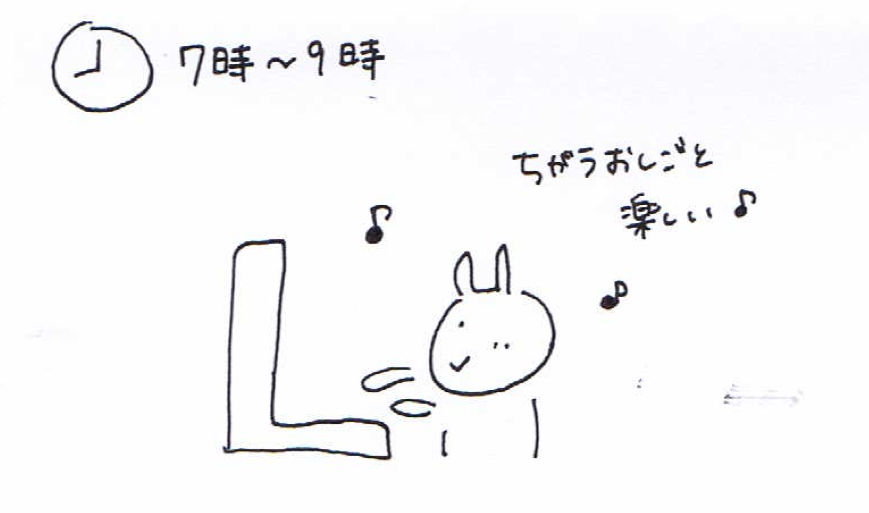 7時～9時
ちがうおしごと
楽しい♪